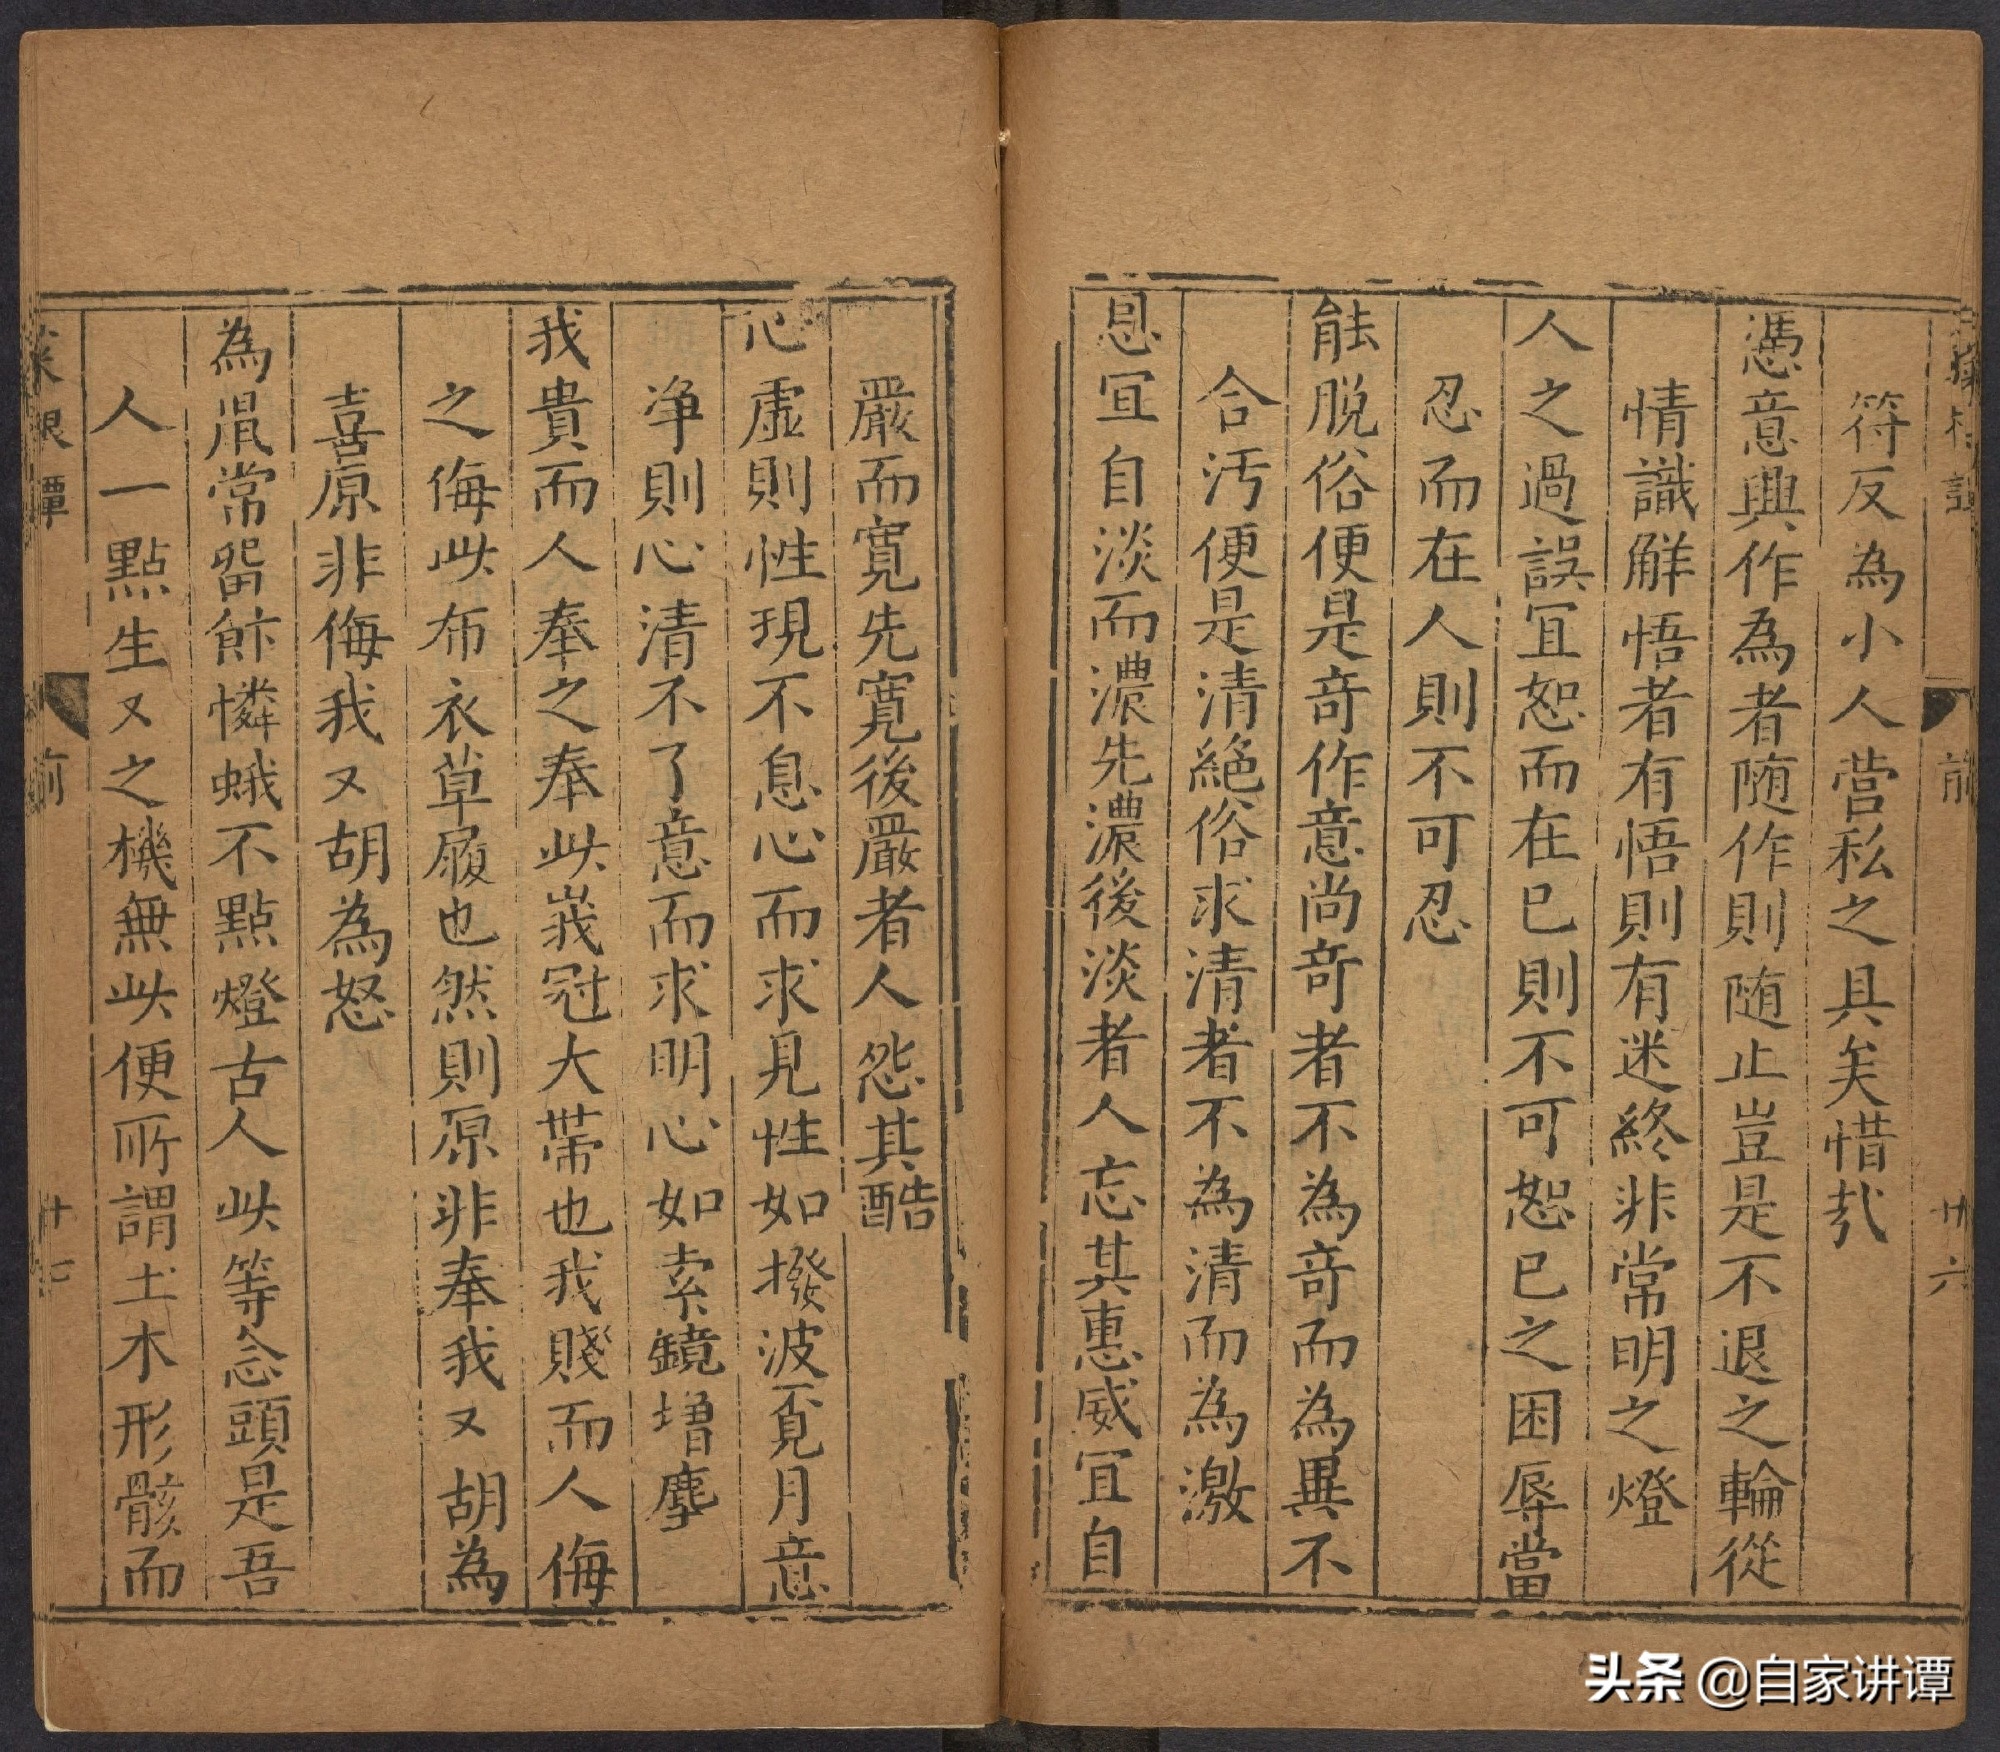 前
廿六
符反為小人營私之具矣惜㢤
憑意興作為者随作則随止豈是不退之輪從
情識解悟者有悟則有迷終非常明之燈
人之過誤宜恕而在已則不可恕已之困辱當
忍而在人則不可忍
能脱俗便是竒作意尚竒者不為竒而為異不
合汚便是清絶俗求清者不為清而為激
恩宜自淡而濃先濃後淡者人忘其惠威宜自
嚴而寛先寛後嚴者人怨其酷
心虚則性現不息心而求見性如撥波覔月意
净則心清不了意而求明心如索鏡増塵
我貴而人奉之奉此峩冠大帶也我賤而人侮
之侮此布衣草履也然則原非奉我又胡為
喜原非侮我又胡為怒
為鼠常留飰憐蛾不點燈古人此等念頭是吾
人一點生又之機無此便所謂土木形骸而
菜根譚
前
廿七
头条 @自家讲谭